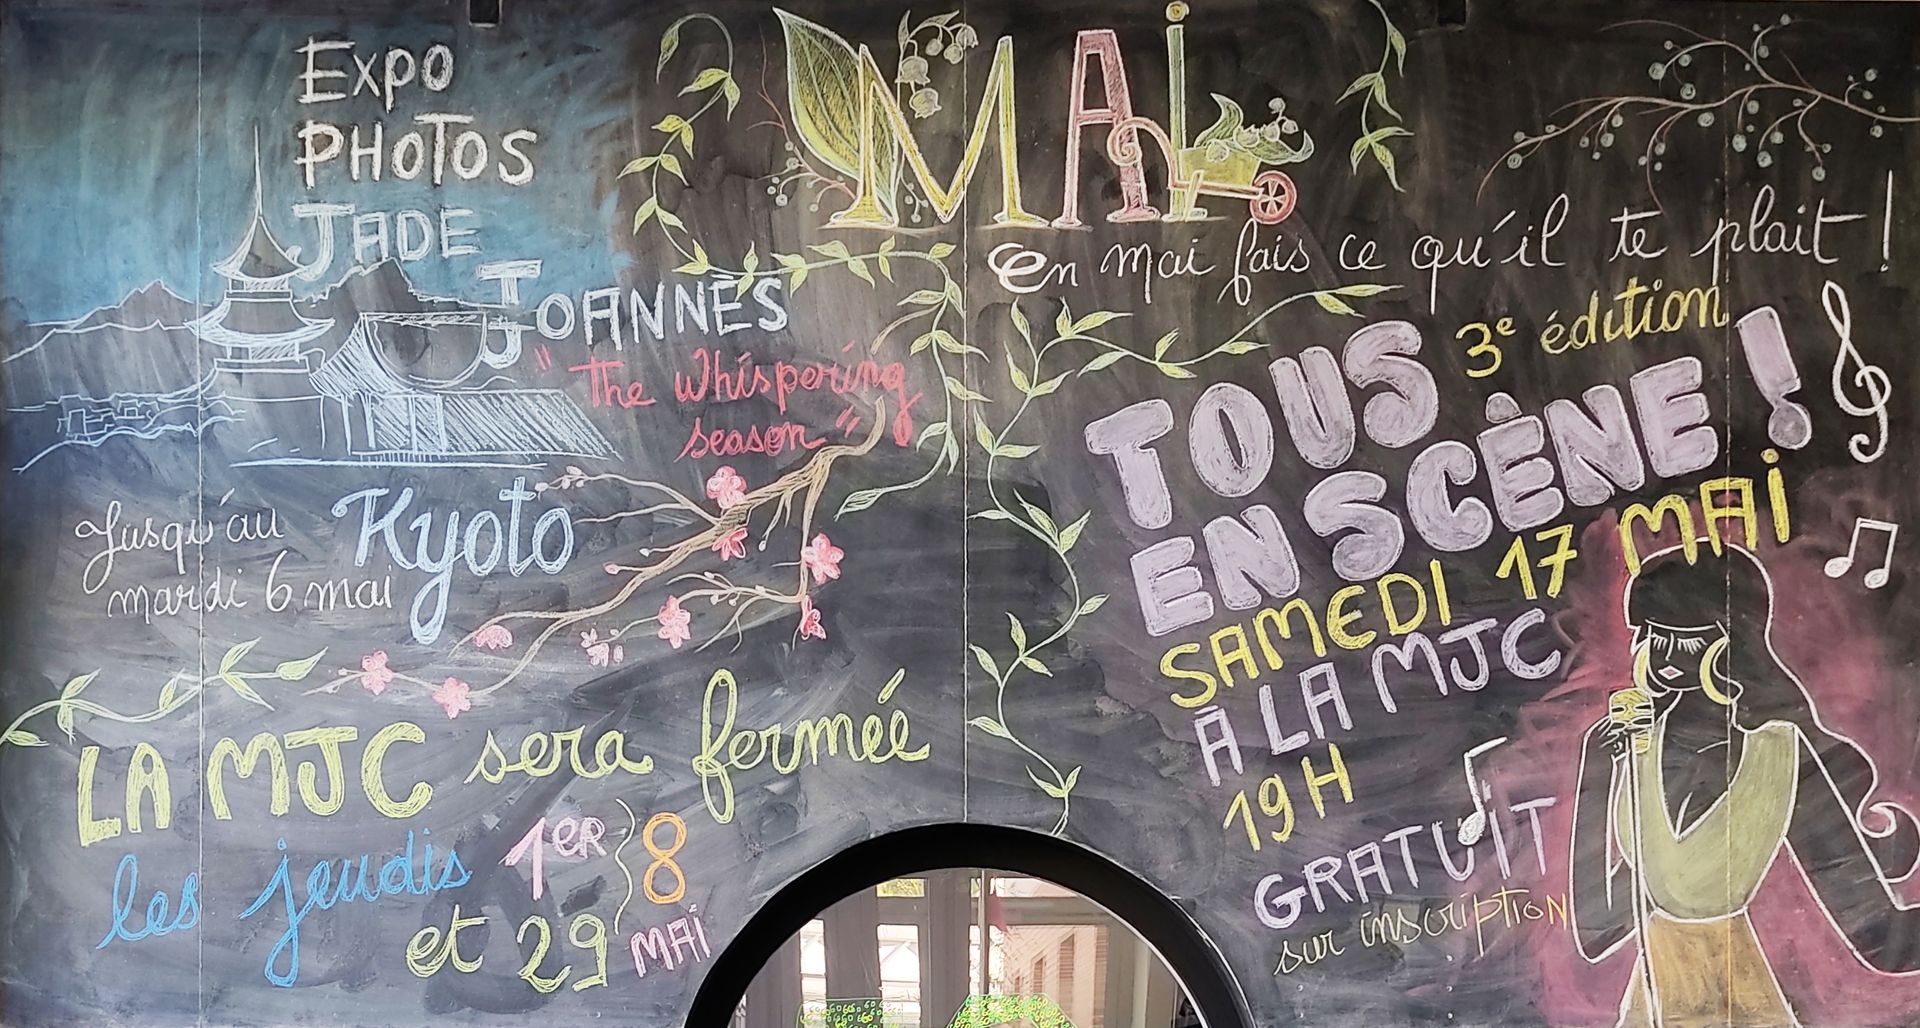 Expo
PHOTOS
JADE
JOANNÈS
"The Whispering
season"
Kyoto
Jusqu'au
mardi 6 mai
LA MJC sera fermée
les jeudis 1ER, 8
et 29 MAI
MAI
en mai fais ce qu'il te plait !
3e édition
TOUS
EN SCÈNE !
SAMEDI 17 MAI
À LA MJC
19H
GRATUIT
sur inscription